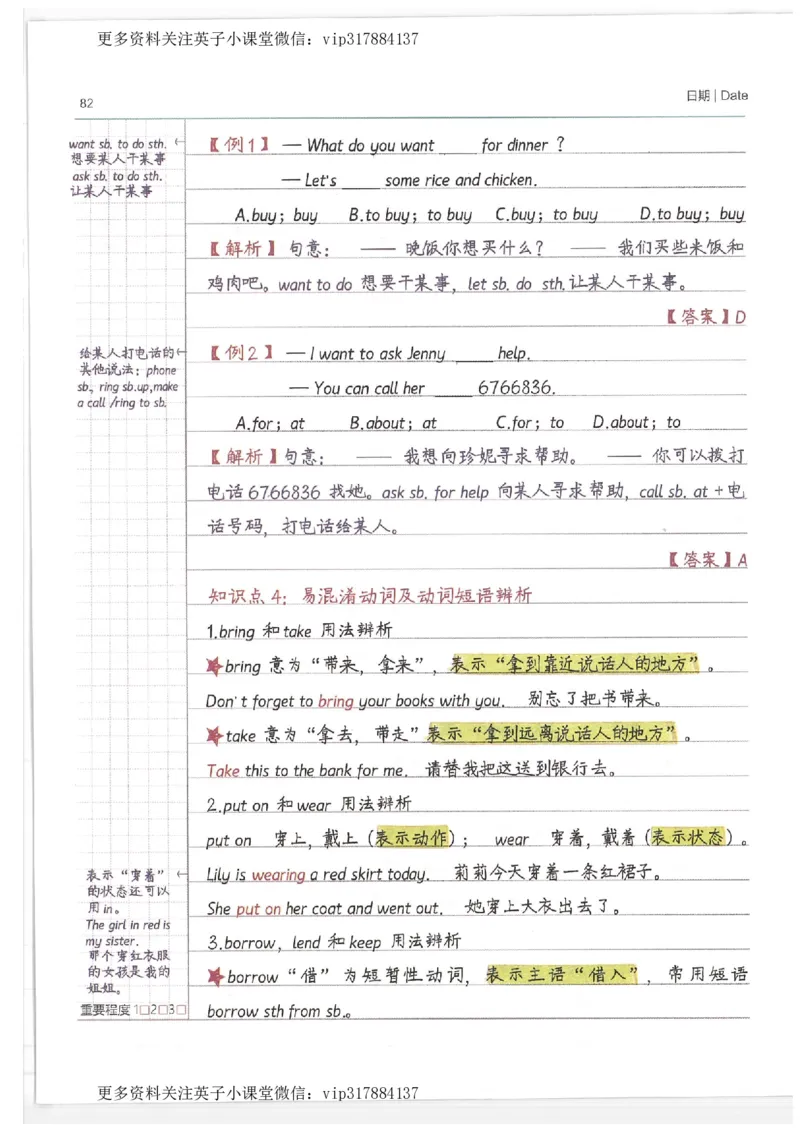 更多资料关注英子小课堂微信：vip317884137
82
日期 | Date
want sb. to do sth. ←
想要某人干某事
ask sb. to do sth.
让某人干某事
【例1】 — What do you want ____ for dinner ?
— Let's ____ some rice and chicken.
A.buy；buy B.to buy；to buy C.buy；to buy D.to buy；buy
【解析】句意： —— 晚饭你想买什么？ —— 我们买些米饭和
鸡肉吧。want to do 想要干某事，let sb. do sth.让某人干某事。
【答案】D
给某人打电话的←
其他说法：phone
sb., ring sb.up,make
a call /ring to sb.
【例2】 — I want to ask Jenny ____ help.
— You can call her ____ 6766836.
A.for；at B.about；at C.for；to D.about；to
【解析】句意： —— 我想向珍妮寻求帮助。 —— 你可以拨打
电话6766836 找她。ask sb. for help 向某人寻求帮助，call sb. at +电
话号码，打电话给某人。
【答案】A
知识点4：易混淆动词及动词短语辨析
1.bring 和take 用法辨析
★bring 意为“带来，拿来”，表示“拿到靠近说话人的地方”。
Don't forget to bring your books with you. 别忘了把书带来。
★take 意为“拿去，带走”表示“拿到远离说话人的地方”。
Take this to the bank for me. 请替我把这送到银行去。
2.put on 和wear 用法辨析
put on 穿上，戴上（表示动作）； wear 穿着，戴着（表示状态）。
表示“穿着” ←
的状态还可以
用in。
The girl in red is
my sister.
那个穿红衣服
的女孩是我的
姐姐。
Lily is wearing a red skirt today. 莉莉今天穿着一条红裙子。
She put on her coat and went out. 她穿上大衣出去了。
3.borrow，lend 和keep 用法辨析
★borrow“借”为短暂性动词，表示主语“借入”，常用短语
borrow sth from sb.。
重要程度 1□2□3□
更多资料关注英子小课堂微信：vip317884137